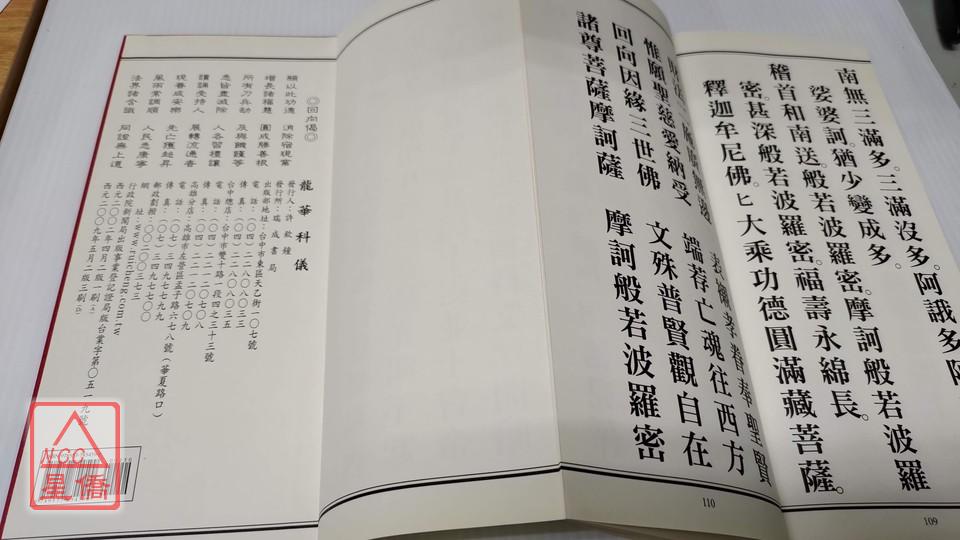 南無三滿多。三滿沒多。阿誐多
娑婆訶。猶少變成多。
稽首和南送。般若波羅密。摩訶般若波羅
密。甚深般若波羅密。福壽永綿長。
釋迦牟尼佛。匕大乘功德圓滿藏菩薩。
109
孝眷奉聖賢
惟願聖慈愛納受 端荐亡魂往西方
回向因緣三世佛 文殊普賢觀自在
諸尊菩薩摩訶薩 摩訶般若波羅密
110
◎回向偈◎
願以此功德 消除宿現業
增長諸福慧 圓成勝善根
所有刀兵劫 及與饑饉等
悉皆盡滅除 人各習禮讓
讀誦受持人 展轉流通者
現眷咸安樂 先亡獲超昇
風雨常調順 人民悉康寧
法界諸含識 同證無上道
龍華科儀
發行人：許欽鐘
發行所：瑞成書局
出版部地址：台中市東區天乙街一〇七號
電話：（〇四）二二一二〇七〇八
台中總店：台中市雙十路一段四之三十三號
高雄分店：高雄市左營區孟子路六七八號（華夏路口）
網址：www.ruicheng.com.tw
行政院新聞局出版事業登記證局版台業字第〇五一九號
西元二〇〇二年四月二版一刷
西元二〇〇九年五月二版三刷
NCC
星僑